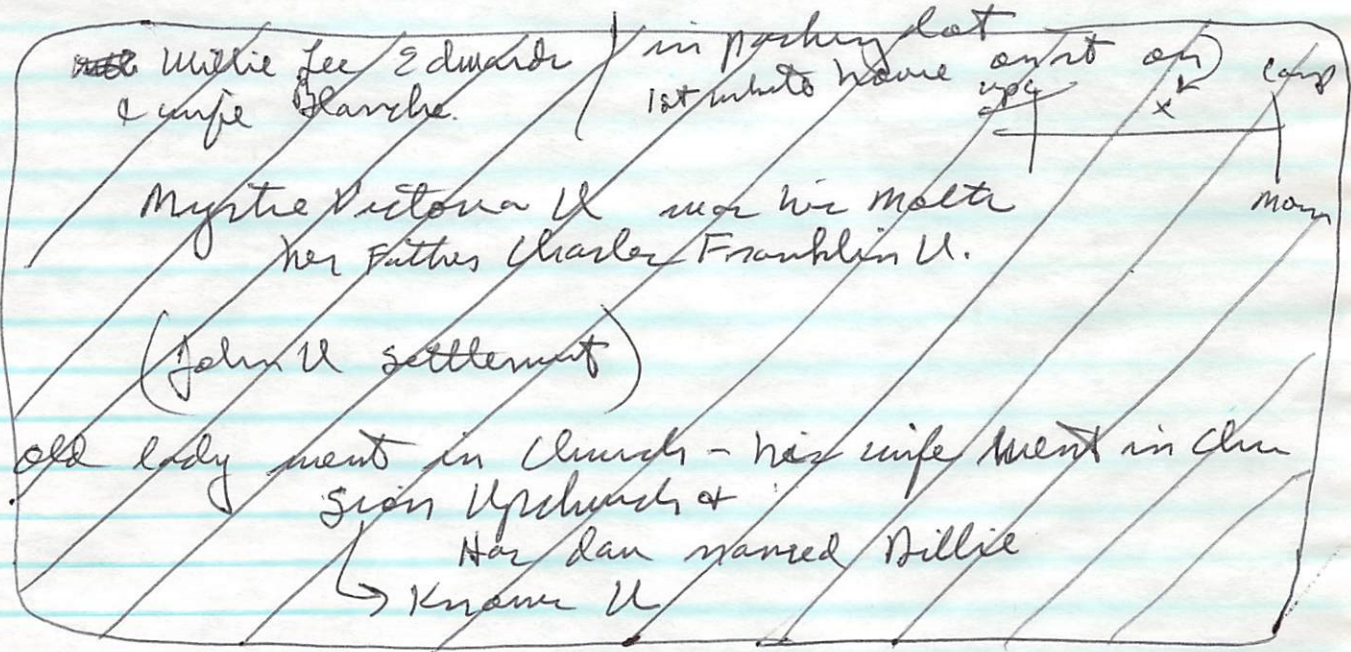 Willie Lee Edwards
& wife Blanche.
in parking lot
1st white house
x
Myrtie Victoria U was his Mother
her Father Charles Franklin U.
(John U settlement)
old lady went in Church - his wife went in Chu
Upchurch &
Has dau named Billie
Knows U